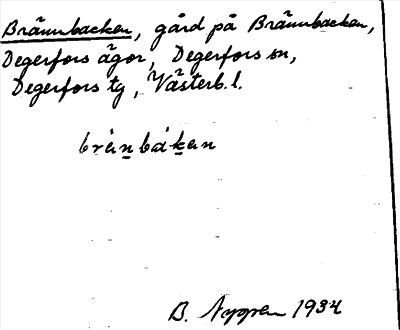 Brännbacken, gård på Brännbacken,
Degerfors ägor, Degerfors sn,
Degerfors tg, Västerb. l.
brä̀n̲bák̲en
B. Nygren 1934